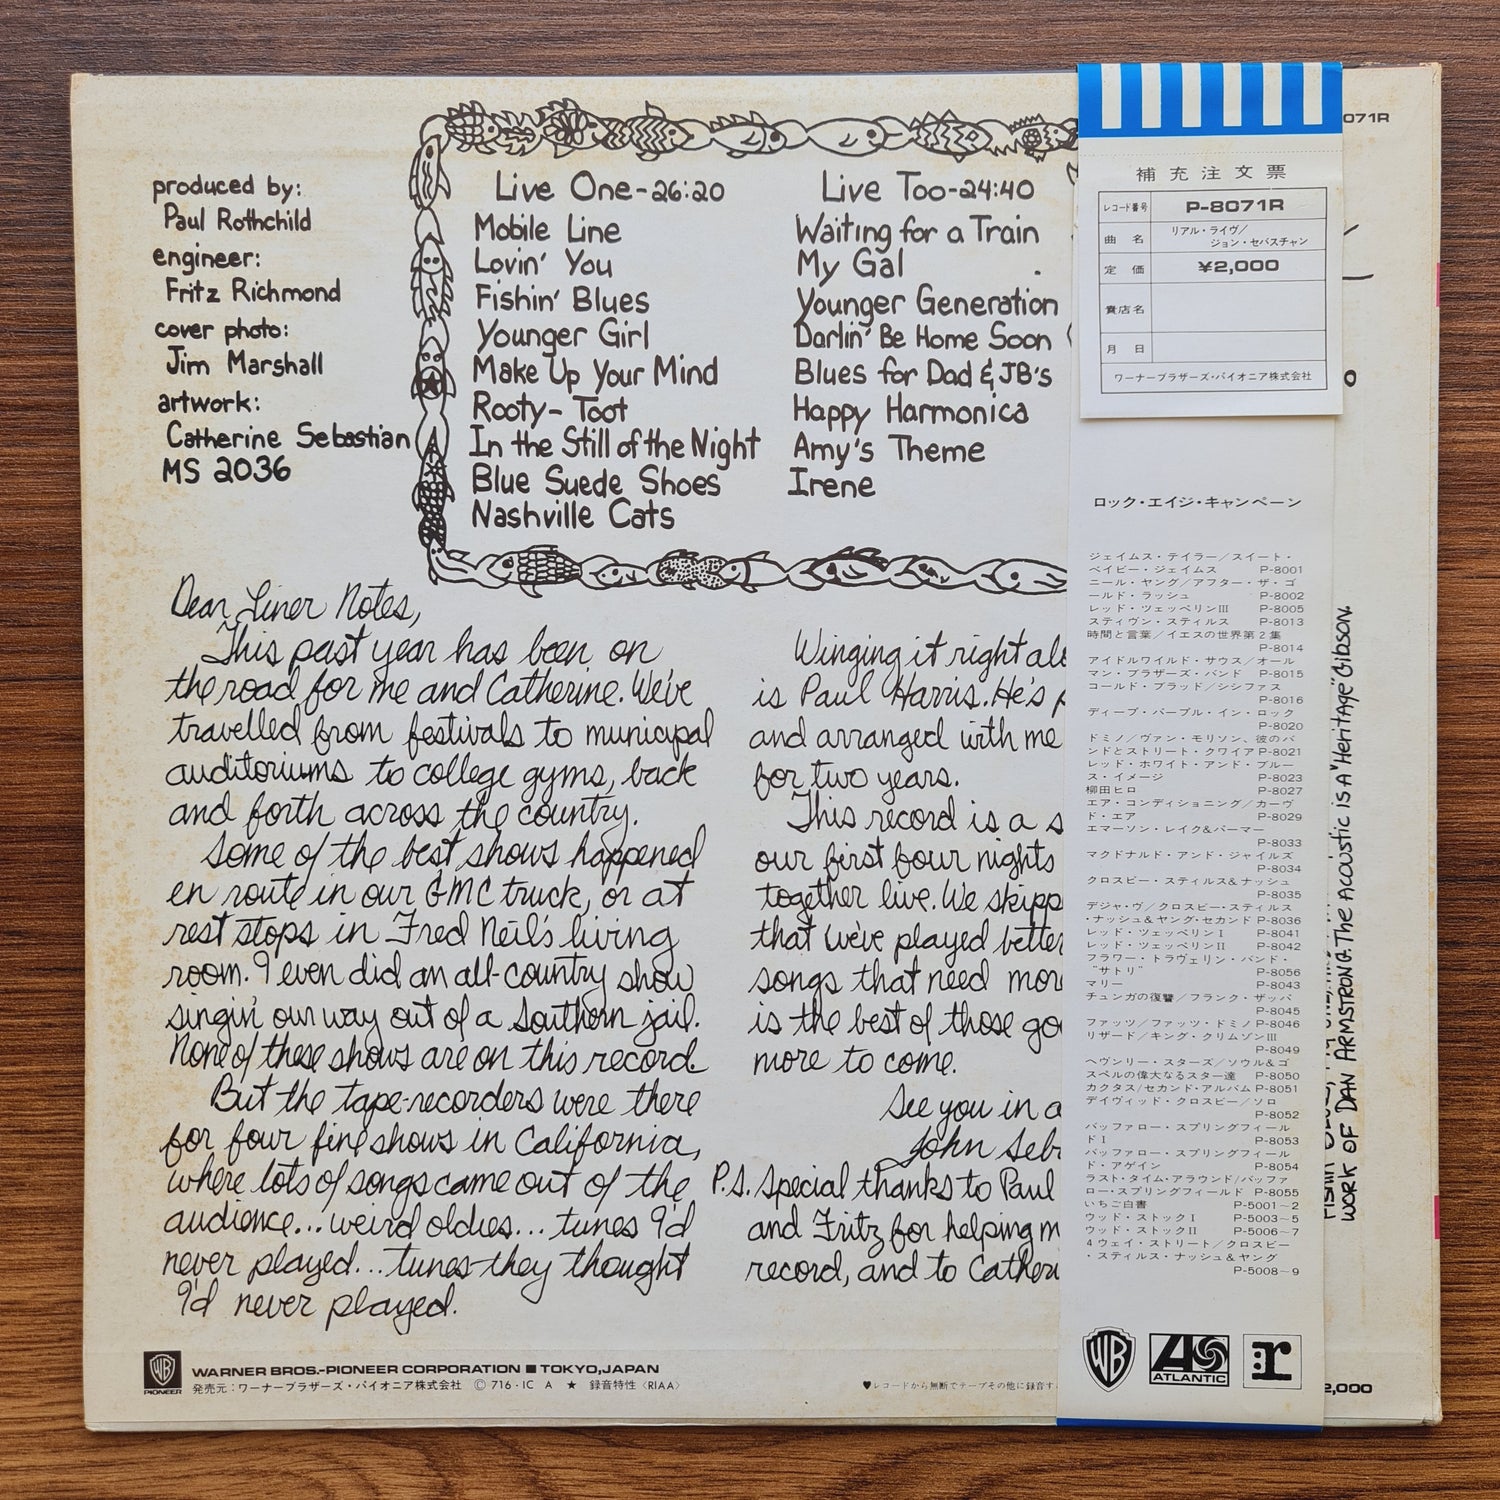 produced by:
Paul Rothchild
engineer:
Fritz Richmond
cover photo:
Jim Marshall
artwork:
Catherine Sebastian
MS 2036
Live One-26:20
Mobile Line
Lovin' You
Fishin' Blues
Younger Girl
Make Up Your Mind
Rooty-Toot
In the Still of the Night
Blue Suede Shoes
Nashville Cats
Live Too-24:40
Waiting for a Train
My Gal
Younger Generation
Darlin' Be Home Soon
Blues for Dad & JB's
Happy Harmonica
Amy's Theme
Irene
Dear Liner Notes,
This past year has been on
the road for me and Catherine. We've
travelled from festivals to municipal
auditoriums to college gyms, back
and forth across the country.
Some of the best shows happened
en route in our GMC truck, or at
rest stops in Fred Neil's living
room. I even did an all-country show
singin' our way out of a Southern jail.
None of these shows are on this record.
But the tape-recorders were there
for four fine shows in California,
where lots of songs came out of the
audience...weird oldies...tunes I'd
never played...tunes they thought
I'd never played.
Winging it right al
is Paul Harris. He's p
and arranged with me
for two years.
This record is a s
our first four nights
together live. We skipp
that we've played better
songs that need mor
is the best of those go
more to come.
See you in a
John Seb
P.S. Special thanks to Paul
and Fritz for helping m
record, and to Catheri
WB
PIONEER
WARNER BROS.-PIONEER CORPORATION ■ TOKYO, JAPAN
発売元:ワーナーブラザーズ・パイオニア株式会社 Ⓒ 716・IC A ★ 録音特性〈RIAA〉
♥レコードから無断でテープその他に録音す
071R
補充注文票
レコード番号 P-8071R
曲名 リアル・ライヴ/
ジョン・セバスチャン
定価 ¥2,000
貴店名
月日
ワーナーブラザーズ・パイオニア株式会社
ロック・エイジ・キャンペーン
ジェイムス・テイラー/スイート・
ベイビー・ジェイムス P-8001
ニール・ヤング/アフター・ザ・ゴ
ールド・ラッシュ P-8002
レッド・ツェッペリンIII P-8005
スティヴン・スティルス P-8013
時間と言葉/イエスの世界第2集
P-8014
アイドルワイルド・サウス/オール
マン・ブラザーズ・バンド P-8015
コールド・ブラッド/シシファス
P-8016
ディープ・パープル・イン・ロック
P-8020
ドミノ/ヴァン・モリソン、彼のバ
ンドとストリート・クワイア P-8021
レッド・ホワイト・アンド・ブルー
ス・イメージ P-8023
柳田ヒロ P-8027
エア・コンディショニング/カーヴ
ド・エア P-8029
エマーソン・レイク&パーマー
P-8033
マクドナルド・アンド・ジャイルズ
P-8034
クロスビー・スティルス&ナッシュ
P-8035
デジャ・ヴ/クロスビー・スティルス
・ナッシュ&ヤング・セカンド P-8036
レッド・ツェッペリンI P-8041
レッド・ツェッペリンII P-8042
フラワー・トラヴェリン・バンド・
"サトリ" P-8056
マリー P-8043
チュンガの復讐/フランク・ザッパ
P-8045
ファッツ/ファッツ・ドミノ P-8046
リザード/キング・クリムゾンIII
P-8049
ヘヴンリー・スターズ/ソウル&ゴ
スペルの偉大なるスター達 P-8050
カクタス/セカンド・アルバム P-8051
デイヴィッド・クロスビー/ソロ
P-8052
バッファロー・スプリングフィール
ドI P-8053
バッファロー・スプリングフィール
ド・アゲイン P-8054
ラスト・タイム・アラウンド/バッファ
ロー・スプリングフィールド P-8055
いちご白書 P-5001~2
ウッド・ストックI P-5003~5
ウッド・ストックII P-5006~7
4ウェイ・ストリート/クロスビー
・スティルス・ナッシュ&ヤング
P-5008~9
WB
ATLANTIC
r
WORK OF DAN ARMSTRONG. THE ACOUSTIC IS A "HERITAGE" GIBSON.
2,000